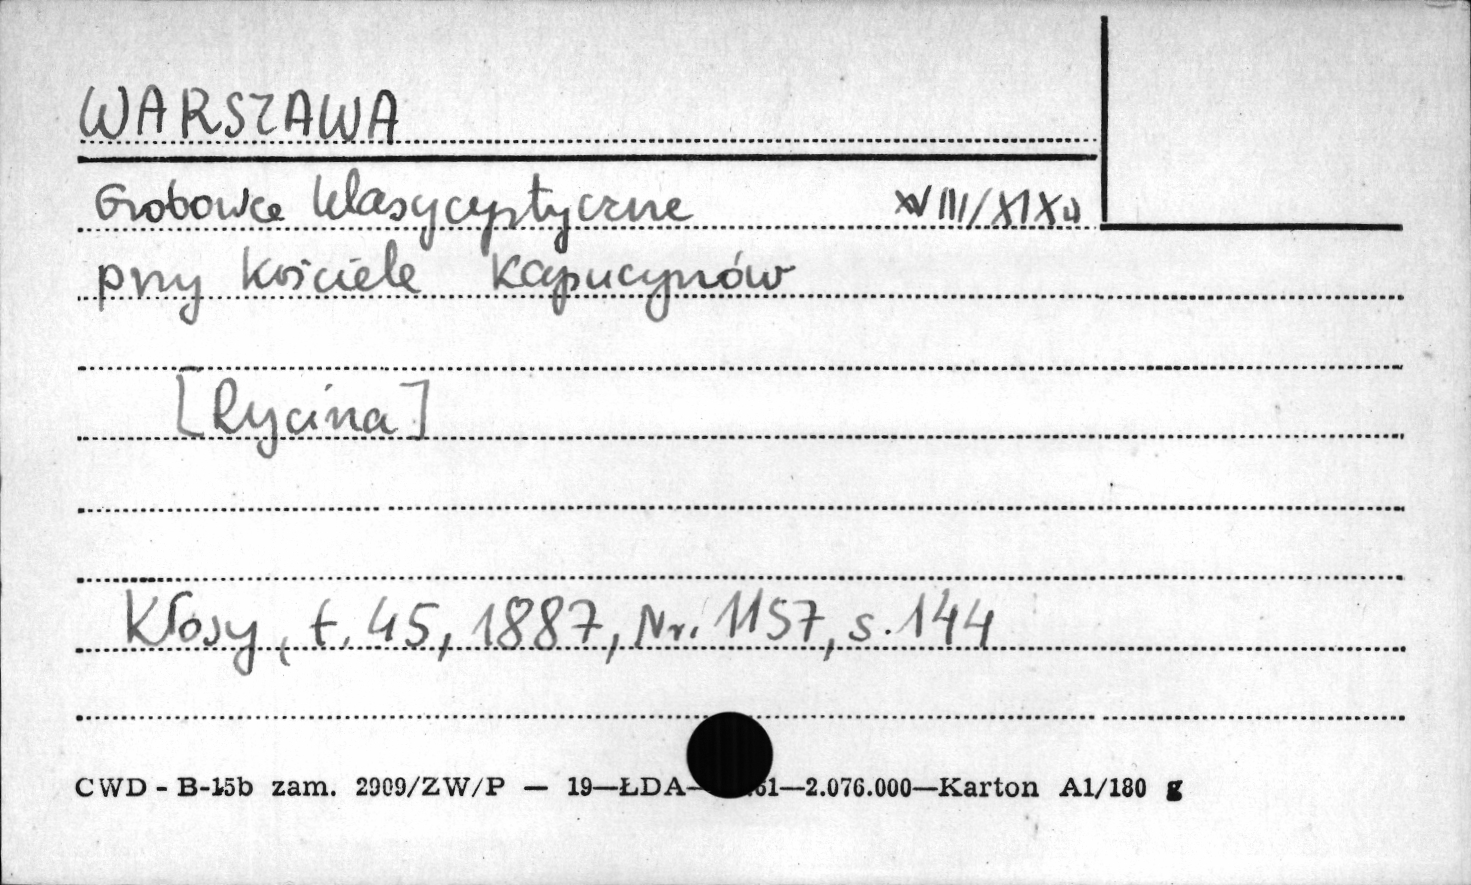 WARSZAWA
Grobowce klasycystyczne XVIII/XIX w
przy kościele Kapucynów
[Rycina]
Kłosy, t. 45, 1887, Nr. 1157, s. 144
CWD - B-15b zam. 2909/ZW/P — 19—ŁDA— 61—2.076.000—Karton A1/180 g